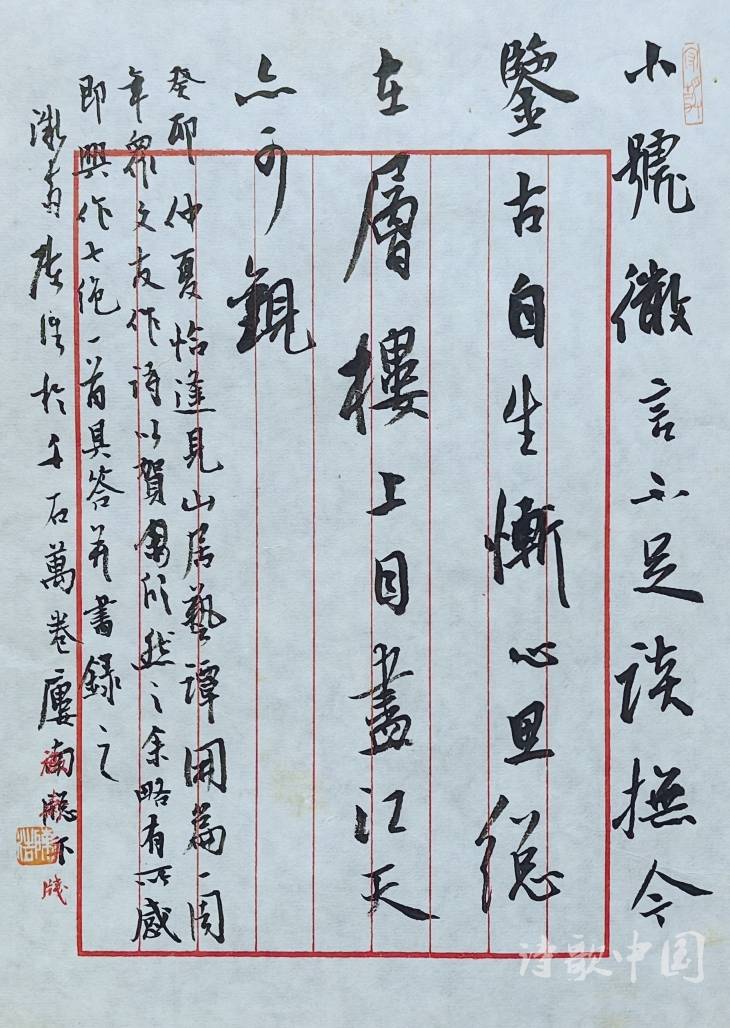 小號微言不足談撫今
鑒古自生慚心思總
在層樓上目盡江天
亦可觀
癸卯仲夏恰逢見山居藝譚開篇一周
年眾文友作詩以賀欣然之余略有所感
即興作七絕一首具答并書錄之
於千石萬卷廔南牕下
诗歌中国